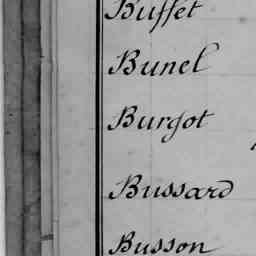 Buffet
Bunel
Burgot
Bussard
Busson